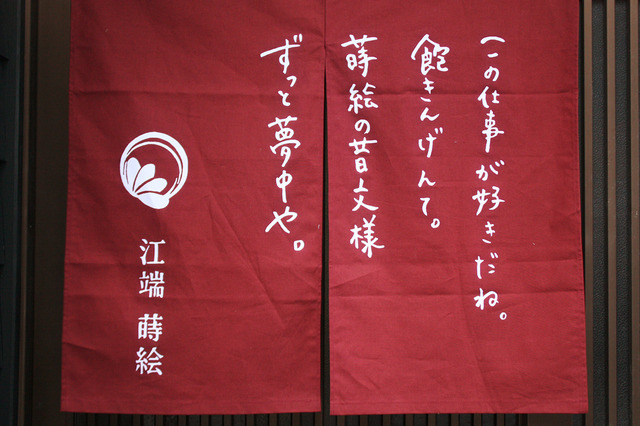 この仕事が好きだね。
飽きんげんて。
蒔絵の昔文様
ずっと夢中や。
江端 蒔絵